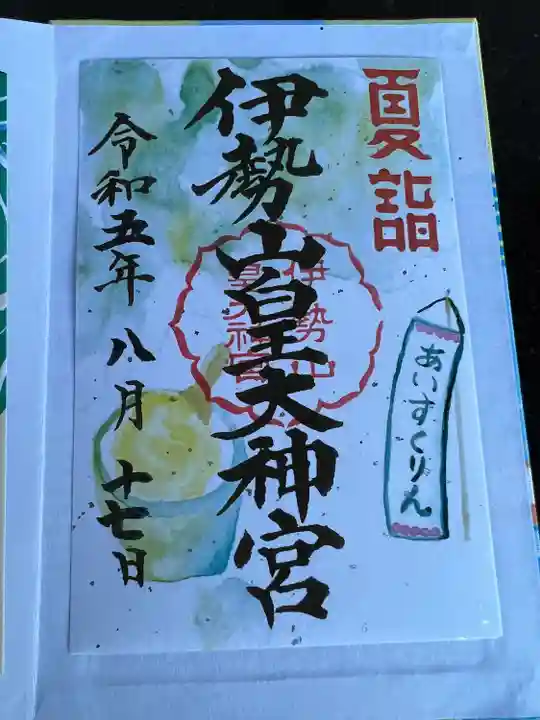 夏詣
あいすくりん
伊勢山皇大神宮
伊勢山
皇大神宮
令和五年八月十七日